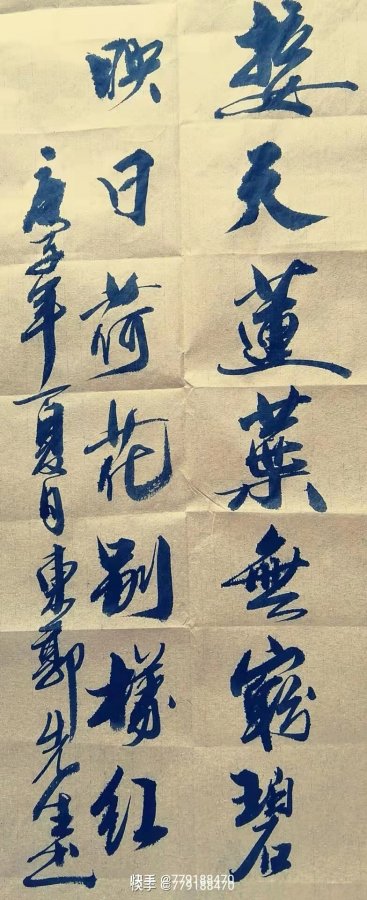 接天蓮葉無窮碧
映日荷花别樣红
庚子年夏日東郭先生书
快手 @779188470
快手 @779188470